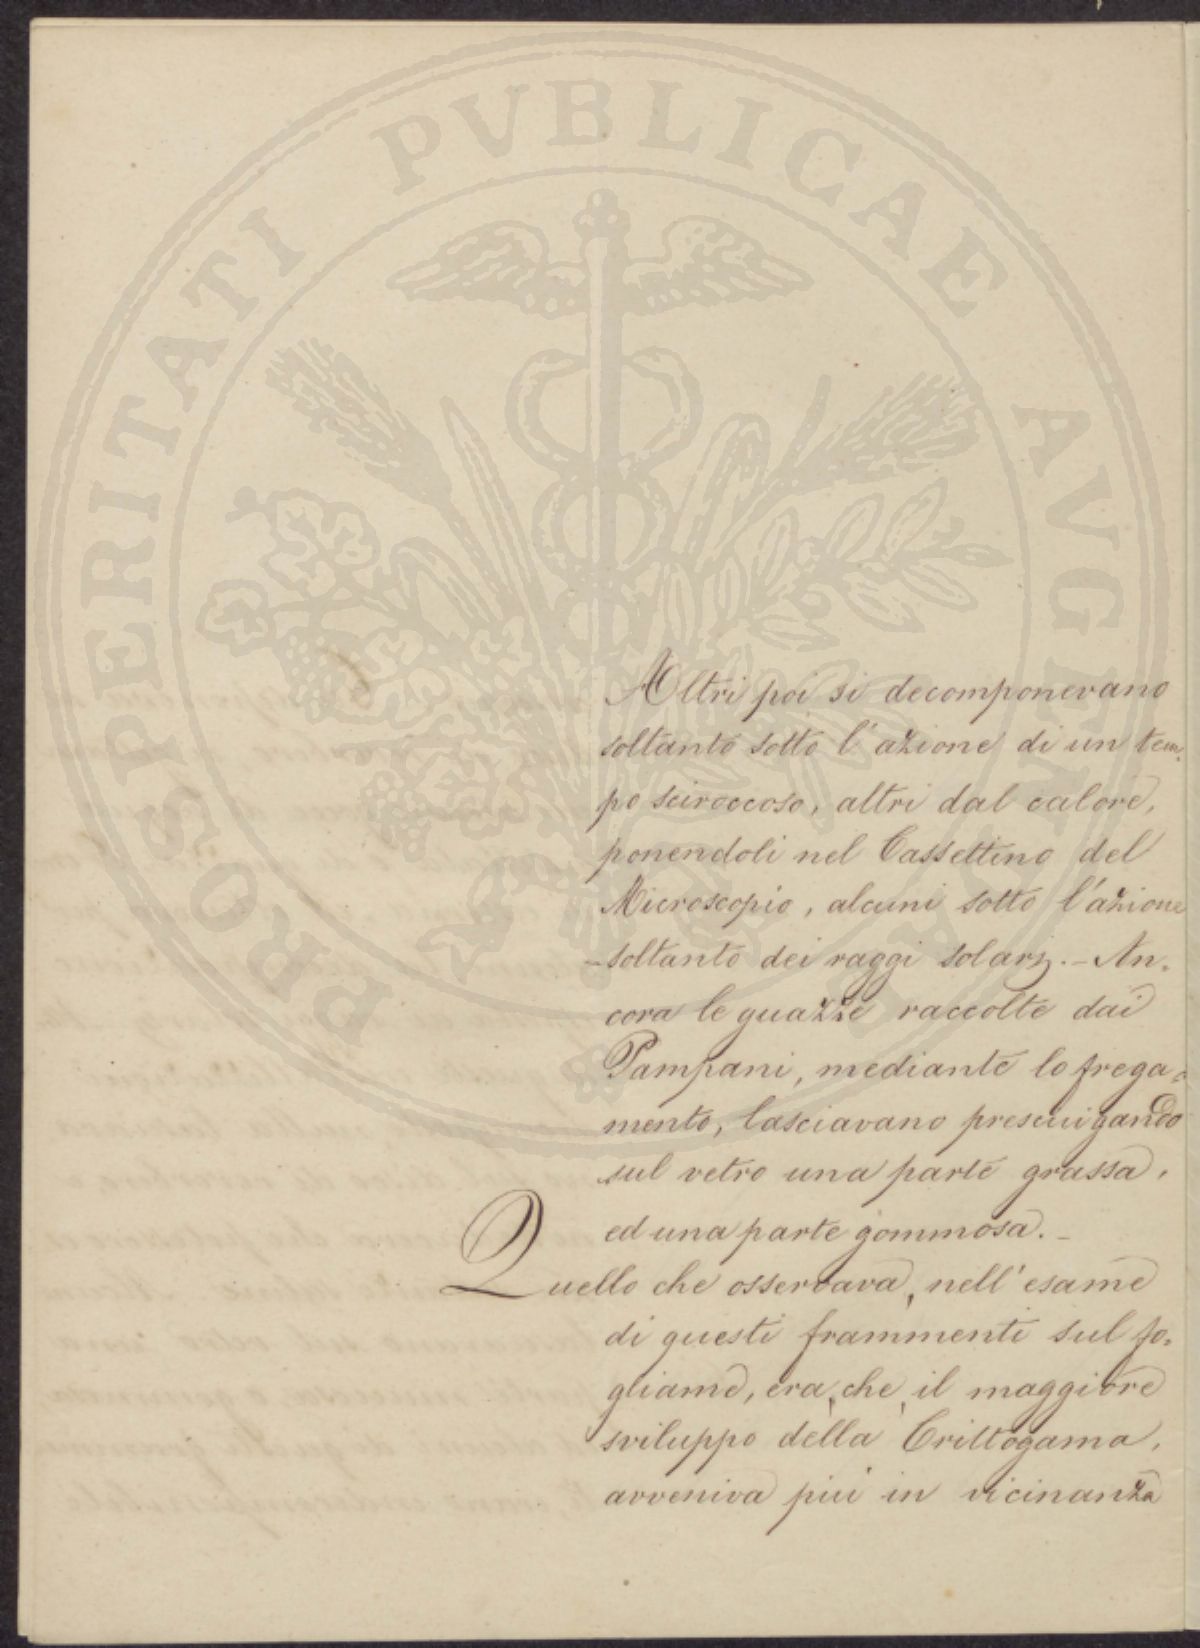 PROSPERITATI PVBLICAE AVGENDAE
Altri poi si decomponevano
soltanto sotto l'azione di un tem-
po sciroccoso, altri dal calore,
ponendoli nel Cassettino del
Microscopio, alcuni sotto l'azione
soltanto dei raggi solarj. - An-
cora le guazze raccolte dai
Pampani, mediante lo frega-
mento, lasciavano presciugando
sul vetro una parte grassa,
ed una parte gommosa. -
Quello che osservava, nell'esame
di questi frammenti sul fo-
gliame, era, che, il maggiore
sviluppo della Crittogama,
avveniva più in vicinanza